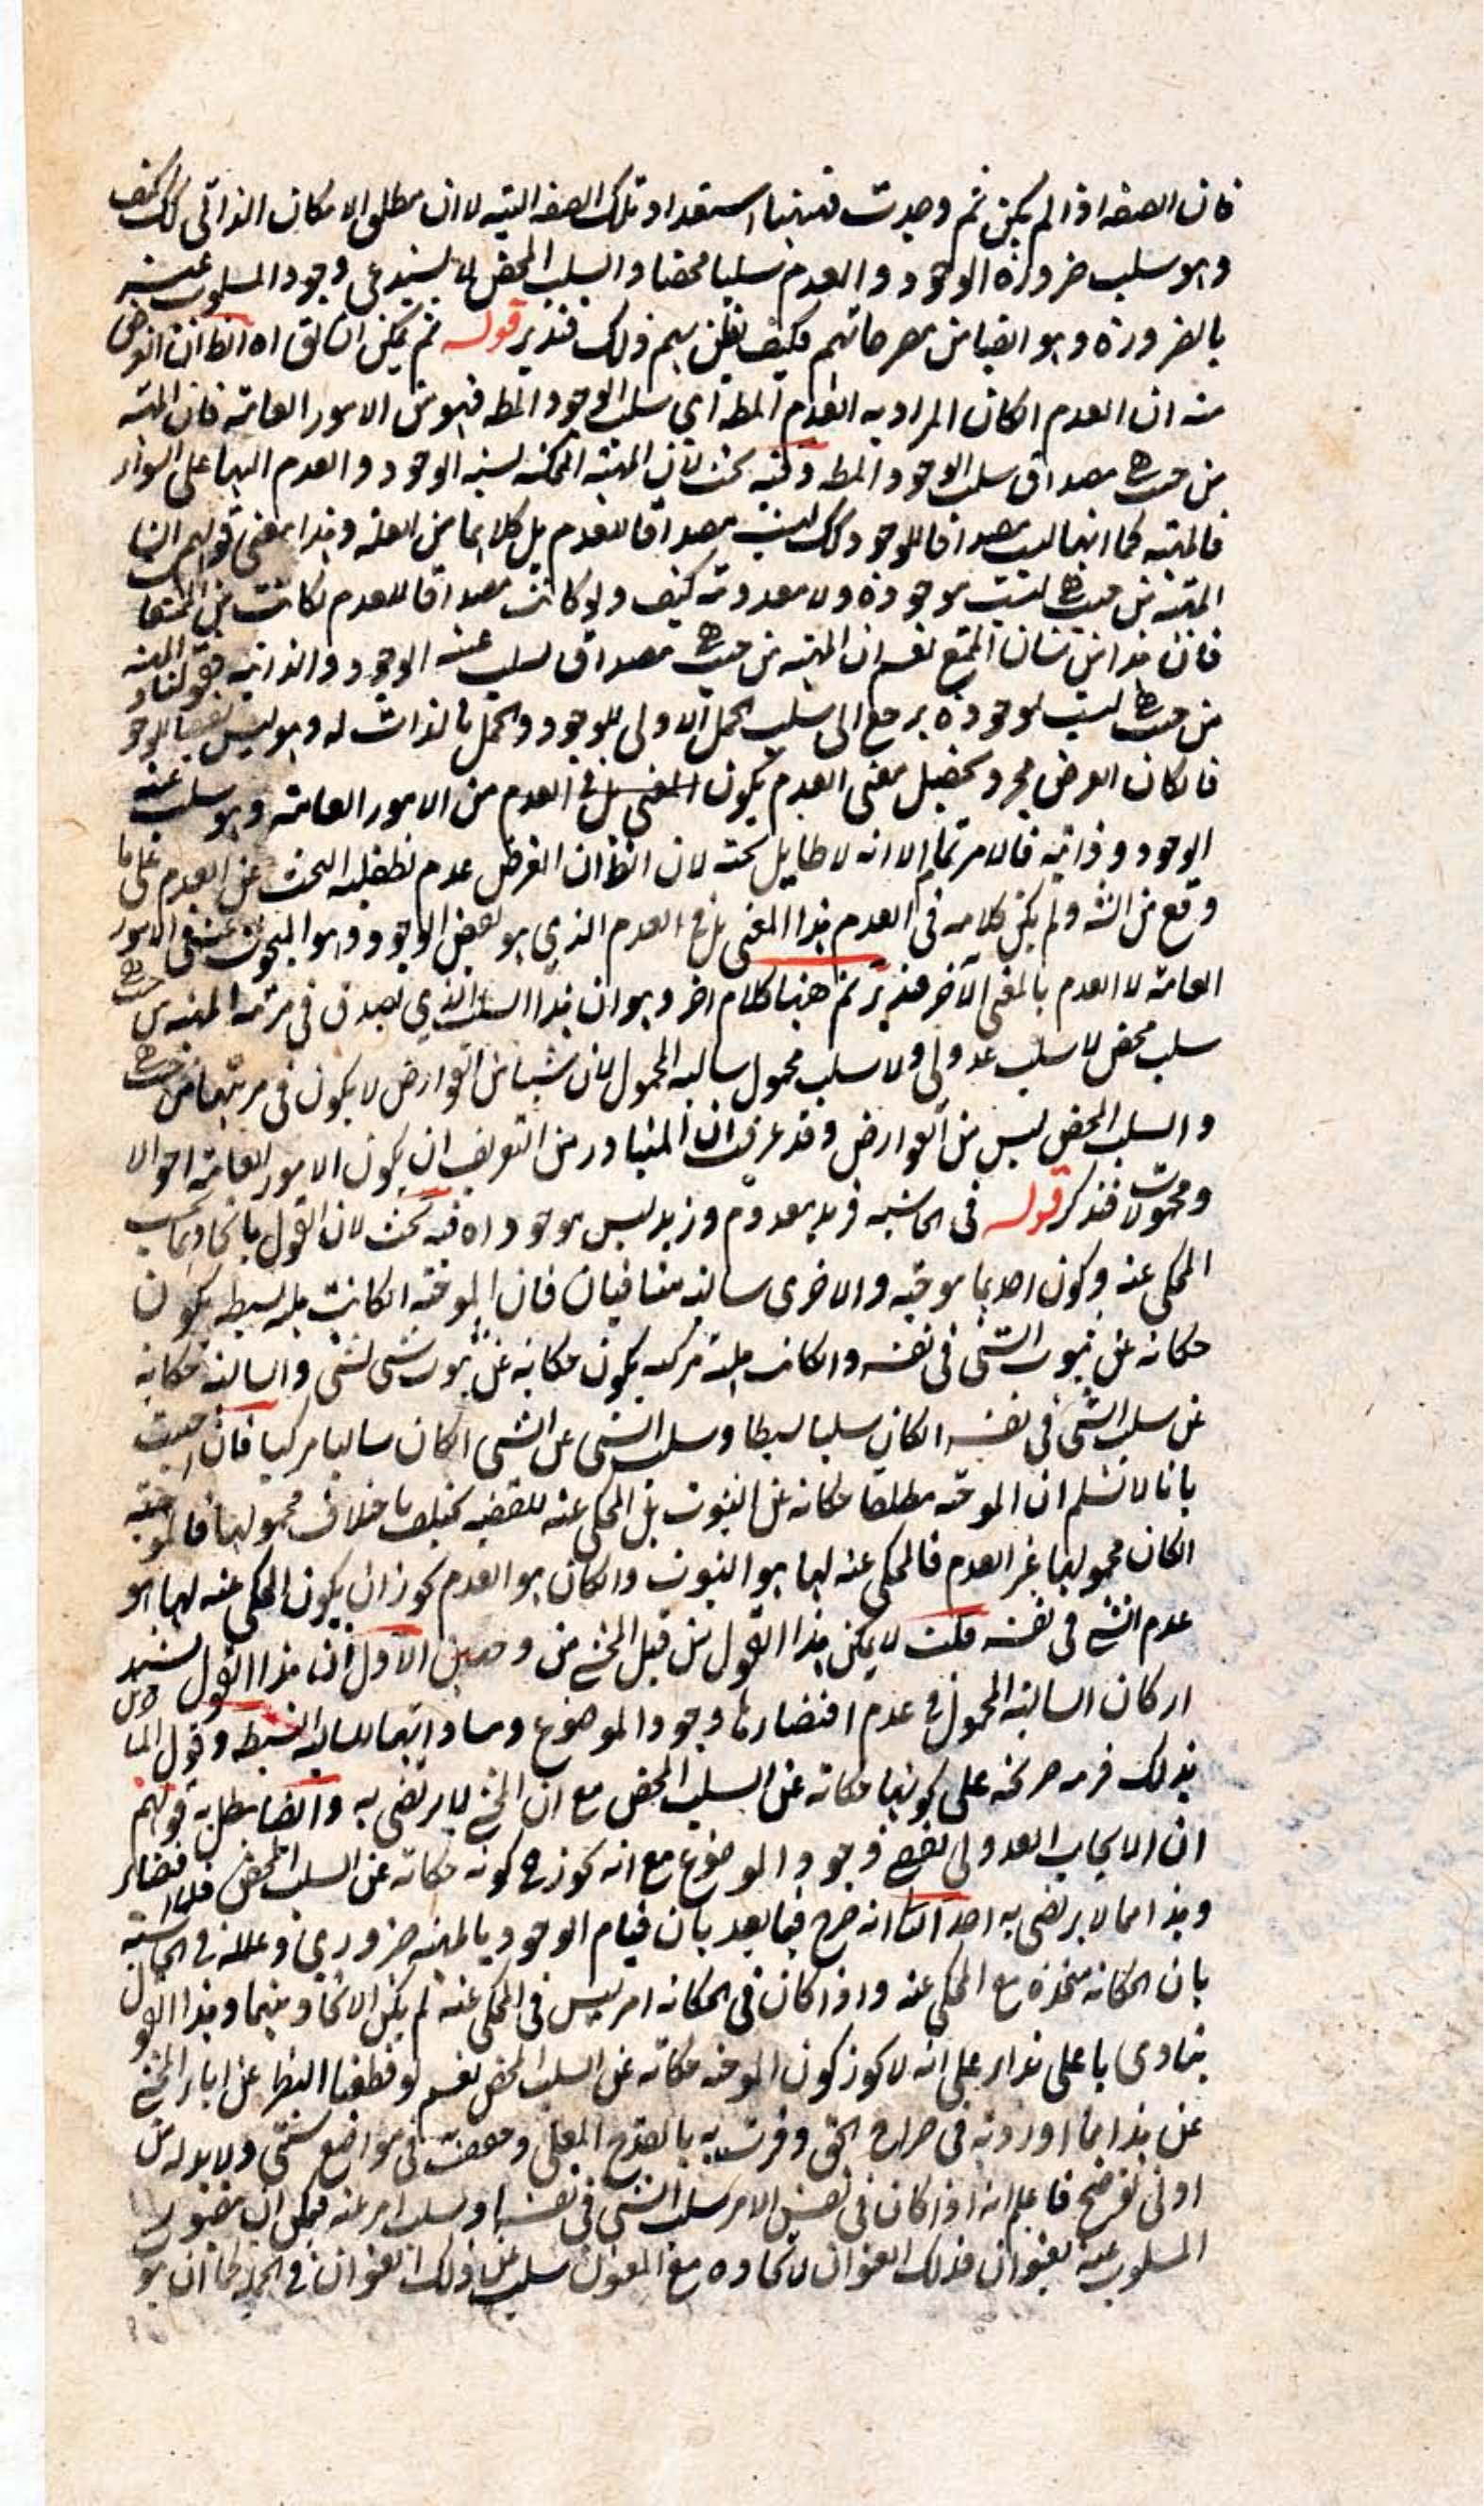 فان الصفه اذا لم يكن ثم وجدت فيها استعداد تلك الصفه البته لا ان مطلق الامكان الذاتى كك كيف
وهو سلب ضرورة الوجود والعدم سلبا محضا والسلب المحض لا يستدعى وجود المسلوب عنه
بالضرورة وهو ايضا من مصرحاتهم فكيف يظن بهم ذلك فتدبر قوله ثم يمكن ان يق اه الظ ان الغرض
منه ان العدم انكان المراد به العدم المط اي سلب الوجود المط فهو من الامور العامة فان المهية
من حيث هي مصداق سلب الوجود المط وفيه بحث لان المهية الممكنة نسبة الوجود والعدم اليها على السواء
فالمهية كما انها ليست مصداقا للوجود كك ليست مصداقا للعدم بل كلاهما من العلة وهذا معنى قولهم ان
المهية من حيث هي ليست موجودة ولا معدومة كيف ولو كانت مصداقا للعدم لكانت من الممتنعات
فان هذا من شان الممتنع نعم ان المهية من حيث هي مصداق لسلب عينية الوجود والذاتية فقولنا المهية
من حيث هي ليست بموجودة يرجع الى سلب الحمل الاولى للوجود والحمل بالذات له وهو ليس نقيضا للوجود
فانكان الغرض مجرد تحصيل معنى العدم يكون العدم من الامور العامة وهو سلب عينية
الوجود وذاتيه فالامر تمام الا انه لا طايل تحته لان الظ ان الغرض عدم تطفلية البحث عن العدم على ما
وقع من الش ولم يكن كلامه فى العدم بهذا المعنى بل فى العدم الذي هو نقيض الوجود وهو المبحوث عنه فى الامور
العامة لا العدم بالمعنى الآخر فتدبر ثم ههنا كلام اخر وهو ان هذا السلب الذي يصدق فى مرتبة المهية من حيث هي
سلب محض لا سلب عدولى ولا سلب محمول سالبة المحمول لان شيئا من العوارض لا يكون فى مرتبتها من حيث هي
والسلب المحض ليس من العوارض وقد عرفت ان المتبادر من التعريف ان يكون الامور العامة احوالا
ومحمولات فتذكر قوله فى الحاشيه فزيد معدوم وزيد ليس بموجود اه فيه بحث لان القول باتحادهما بحسب
المحكى عنه وكون احدهما موجبة والاخرى سالبة متنافيان فان الموجبة انكانت هلية بسيطة يكون
حكاية عن ثبوت الشى فى نفسه وانكانت هلية مركبة يكون حكاية عن ثبوت شى لشى والسالبة حكاية
عن سلب الشى فى نفسه انكان سلبا بسيطا وسلب الشى عن الشى انكان سالبا مركبا فان اجيب
بانا لا نسلم ان الموجبة مطلقا حكاية عن الثبوت بل المحكى عنه للقضية يختلف باختلاف محمولها فالموجبة
انكان محمولها غير العدم فالمحكى عنه لها هو الثبوت وانكان هو العدم يجوز ان يكون المحكى عنه لها هو
عدم الشى فى نفسه قلت لا يمكن هذا القول من قبل المحشى من وجهين الاول ان هذا القول
اركان السالبة المحمول فى عدم اقتضائها وجود الموضوع ومساواتها للسالبة البسيطة وقول
بذلك فرية صريحة على كونها حكاية عن السلب المحض مع ان المحشى لا يرتضى به وايضا يبطل به قولهم
ان الايجاب العدولى يقتضى وجود الموضوع مع انه يجوز ح كونه حكاية عن السلب المحض فلا اقتضاء
وهذا مما لا يرتضى به احد الثانى انه صرح فيما بعد بان قيام الوجود بالمهية ضروري وعلله فى الحاشية
بان الحكاية متحدة مع المحكى عنه واذا كان فى الحكاية امر ليس فى المحكى عنه لم يكن الاتحاد بينهما وهذا القول
ينادى باعلى نداء على انه لا يجوز كون الموجبة حكاية عن السلب المحض نعم لو قطعنا النظر عن اباء المحشى
عن هذا فما اوردته فى صراح الحق وفرت به بالقدح المعلى وحققت فى مواضع شتى ولا بد له من
ادنى توضيح فاعلم انه اذا كان فى نفس الامر سلب الشى فى نفسه او سلب امر عنه فيمكن ان
المسلوب عنه بعنوان فذلك العنوان لاتحاده مع المعنون سلب عن ذلك العنوان فى الحكاية كما ان هو